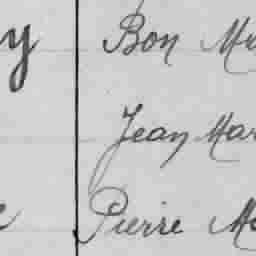 y Bon Ma
Jean Mar
e Pierre Ma